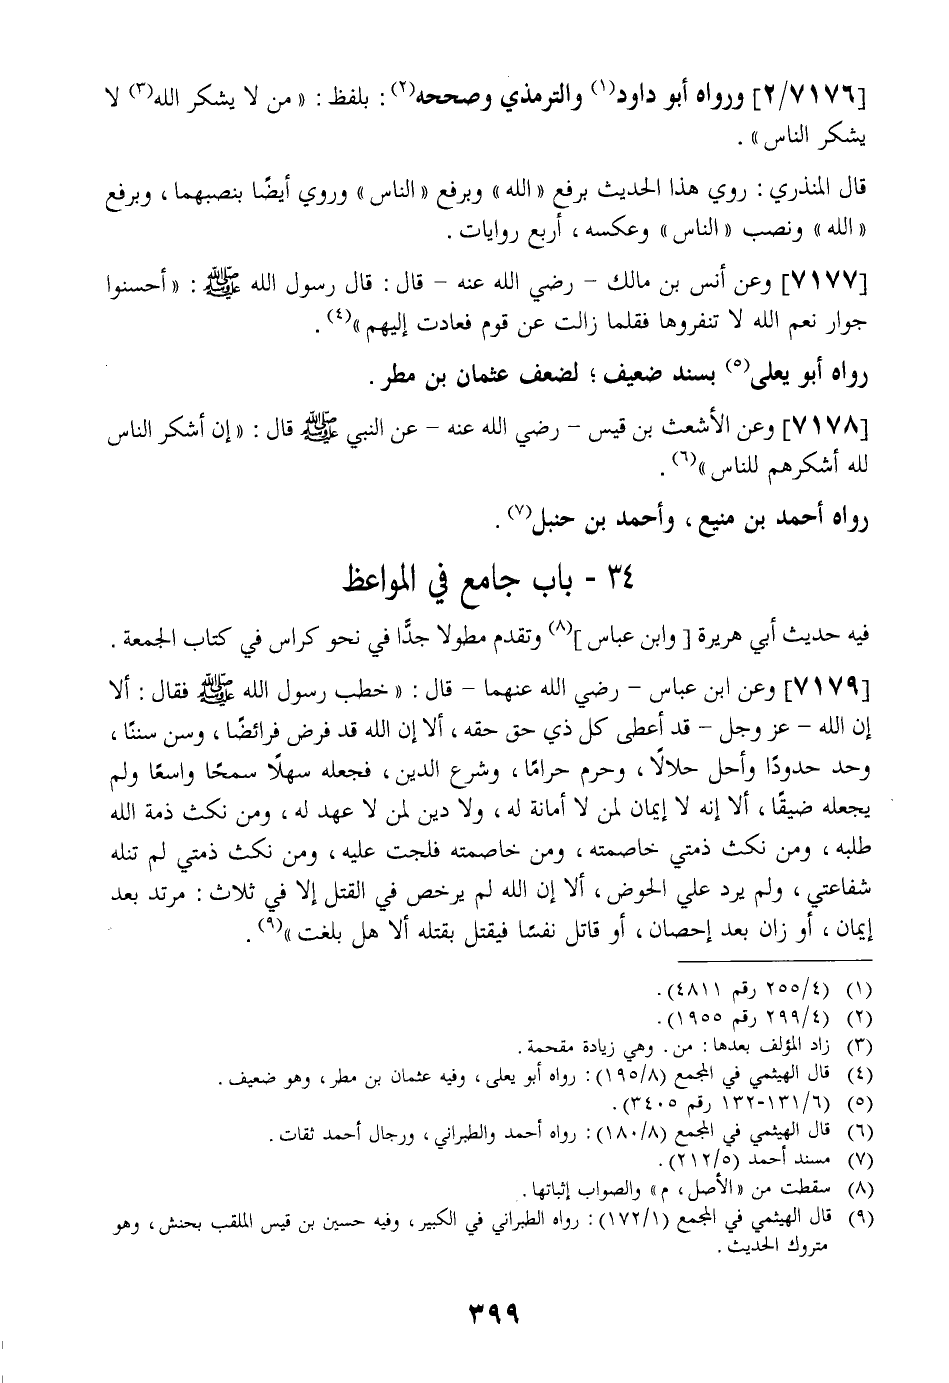 [٢/٧١٧٦] ورواه أبو داود(١) والترمذي وصححه(٢) : بلفظ : « من لا يشكر الله(٣) لا
يشكر الناس » .
قال المنذري : روي هذا الحديث برفع «الله» وبرفع «الناس» وروي أيضًا بنصبهما ، وبرفع
«الله» ونصب «الناس» وعكسه ، أربع روايات .
[٧١٧٧] وعن أنس بن مالك - رضي الله عنه - قال : قال رسول الله ﷺ : « أحسنوا
جوار نعم الله لا تنفروها فقلما زالت عن قوم فعادت إليهم »(٤) .
رواه أبو يعلى(٥) بسند ضعيف ؛ لضعف عثمان بن مطر .
[٧١٧٨] وعن الأشعث بن قيس - رضي الله عنه - عن النبي ﷺ قال : « إن أشكر الناس
لله أشكرهم للناس »(٦) .
رواه أحمد بن منيع ، وأحمد بن حنبل(٧) .
٣٤ - باب جامع في المواعظ
فيه حديث أبي هريرة [ وابن عباس ](٨) وتقدم مطولا جدًّا في نحو كراس في كتاب الجمعة .
[٧١٧٩] وعن ابن عباس - رضي الله عنهما - قال : « خطب رسول الله ﷺ فقال : ألا
إن الله - عز وجل - قد أعطى كل ذي حق حقه ، ألا إن الله قد فرض فرائضًا ، وسن سننًا ،
وحد حدودًا وأحل حلالًا ، وحرم حرامًا ، وشرع الدين ، فجعله سهلًا سمحًا واسعًا ولم
يجعله ضيقًا ، ألا إنه لا إيمان لمن لا أمانة له ، ولا دين لمن لا عهد له ، ومن نكث ذمة الله
طلبه ، ومن نكث ذمتي خاصمته ، ومن خاصمته فلجت عليه ، ومن نكث ذمتي لم تنله
شفاعتي ، ولم يرد علي الحوض ، ألا إن الله لم يرخص في القتل إلا في ثلاث : مرتد بعد
إيمان ، أو زان بعد إحصان ، أو قاتل نفسًا فيقتل بقتله ألا هل بلغت »(٩) .
(١) (٤/ ٢٥٥ رقم ٤٨١١) .
(٢) (٤/ ٢٩٩ رقم ١٩٥٥) .
(٣) زاد المؤلف بعدها : من . وهي زيادة مقحمة .
(٤) قال الهيثمي في المجمع (٨/ ١٩٥) : رواه أبو يعلى ، وفيه عثمان بن مطر ، وهو ضعيف .
(٥) (٦/ ١٣١-١٣٢ رقم ٣٤٠٥) .
(٦) قال الهيثمي في المجمع (٨/ ١٨٠) : رواه أحمد والطبراني ، ورجال أحمد ثقات .
(٧) مسند أحمد (٥/ ٢١٢) .
(٨) سقطت من «الأصل ، م» والصواب إثباتها .
(٩) قال الهيثمي في المجمع (١/ ١٧٢) : رواه الطبراني في الكبير ، وفيه حسين بن قيس الملقب بحنش ، وهو
متروك الحديث .
٣٩٩